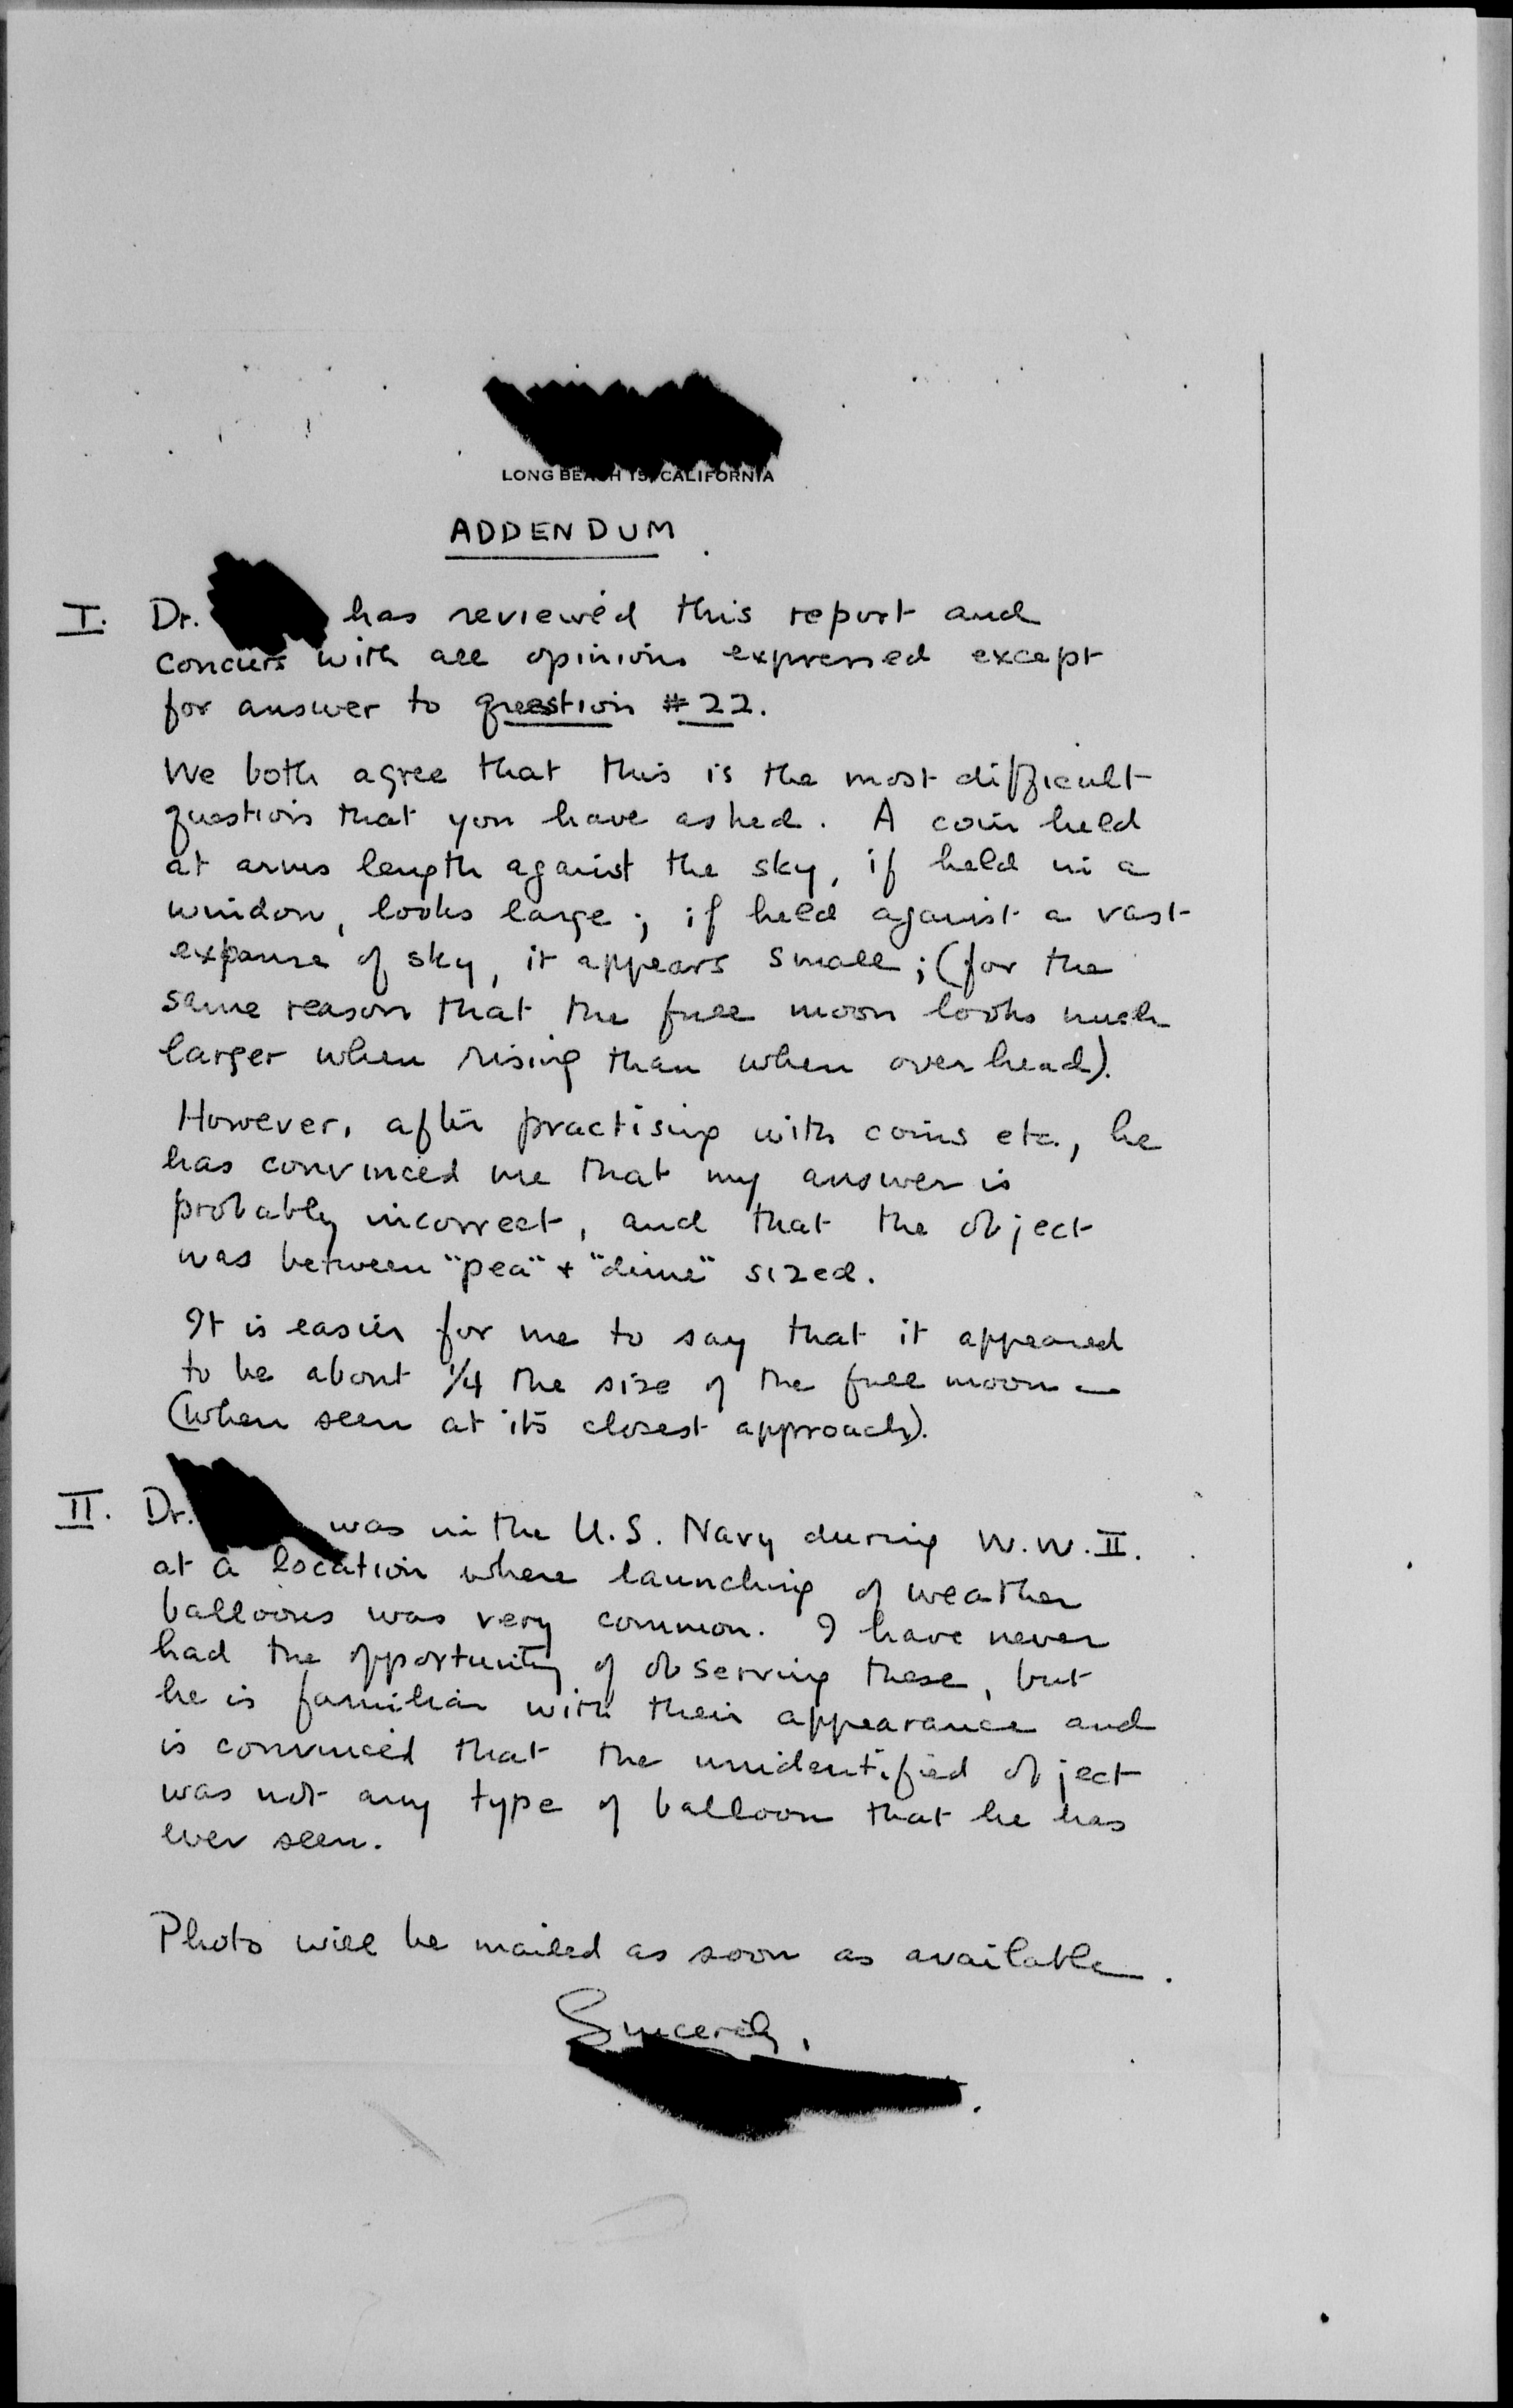 LONG BEACH 15, CALIFORNIA
ADDENDUM
I. Dr. has reviewed this report and
concurs with all opinions expressed except
for answer to question #22.
We both agree that this is the most difficult
question that you have asked. A coin held
at arms length against the sky, if held in a
window, looks large; if held against a vast
expanse of sky, it appears small; (for the
same reason that the full moon looks much
larger when rising than when overhead).
However, after practising with coins etc., he
has convinced me that my answer is
probably incorrect, and that the object
was between "pea" + "dime" sized.
It is easier for me to say that it appeared
to be about 1/4 the size of the full moon -
(when seen at its closest approach).
II. Dr. was in the U.S. Navy during W.W.II.
at a location where launching of weather
balloons was very common. I have never
had the opportunity of observing these, but
he is familiar with their appearance and
is convinced that the unidentified object
was not any type of balloon that he has
ever seen.
Photo will be mailed as soon as available.
Sincerely,